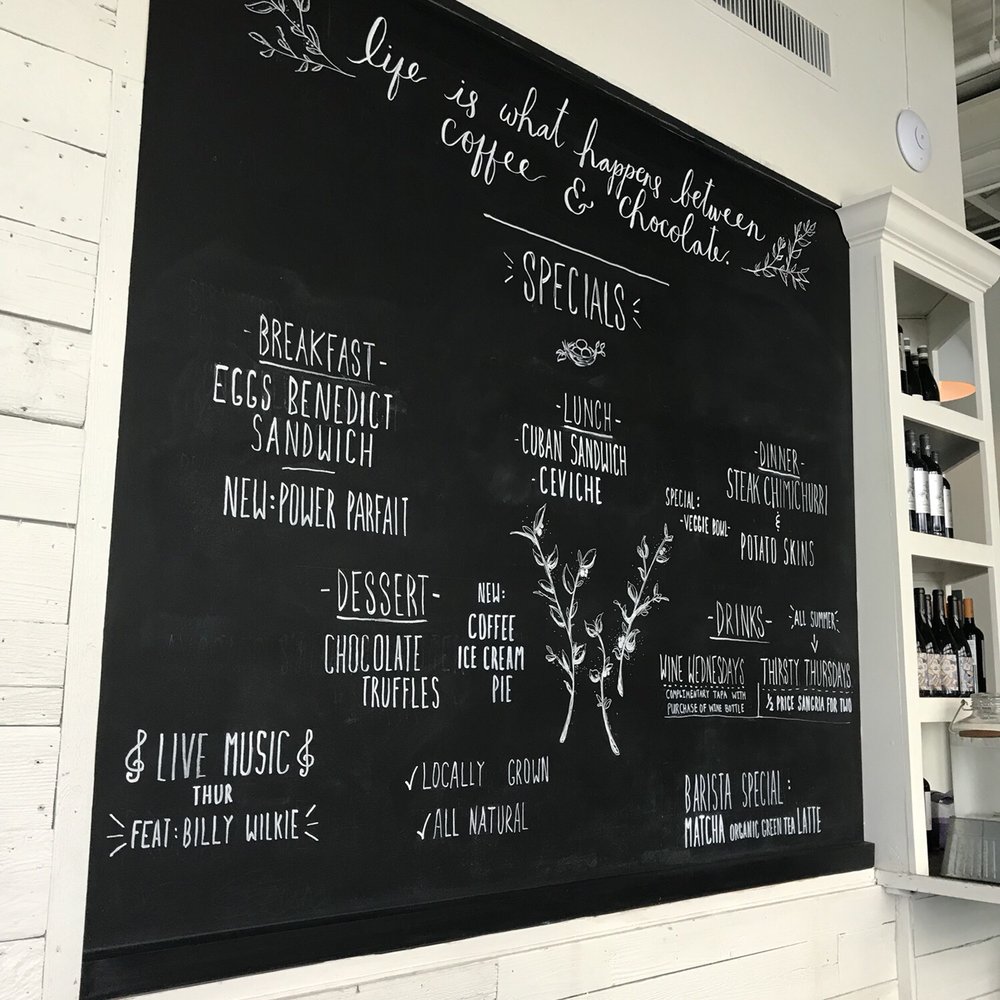 life is what happens between
coffee & chocolate.
SPECIALS
-BREAKFAST-
EGGS BENEDICT
SANDWICH
NEW: POWER PARFAIT
-LUNCH-
-CUBAN SANDWICH
-CEVICHE
-DINNER-
STEAK CHIMICHURRI
&
POTATO SKINS
SPECIAL:
-VEGGIE BOWL-
-DESSERT-
CHOCOLATE
TRUFFLES
NEW:
COFFEE
ICE CREAM
PIE
-DRINKS-
ALL SUMMER
WINE WEDNESDAYS
COMPLIMENTARY TAPA WITH
PURCHASE OF WINE BOTTLE
THIRSTY THURSDAYS
½ PRICE SANGRIA FOR TWO
LIVE MUSIC
THUR
FEAT: BILLY WILKIE
✓LOCALLY GROWN
✓ALL NATURAL
BARISTA SPECIAL:
MATCHA ORGANIC GREEN TEA LATTE